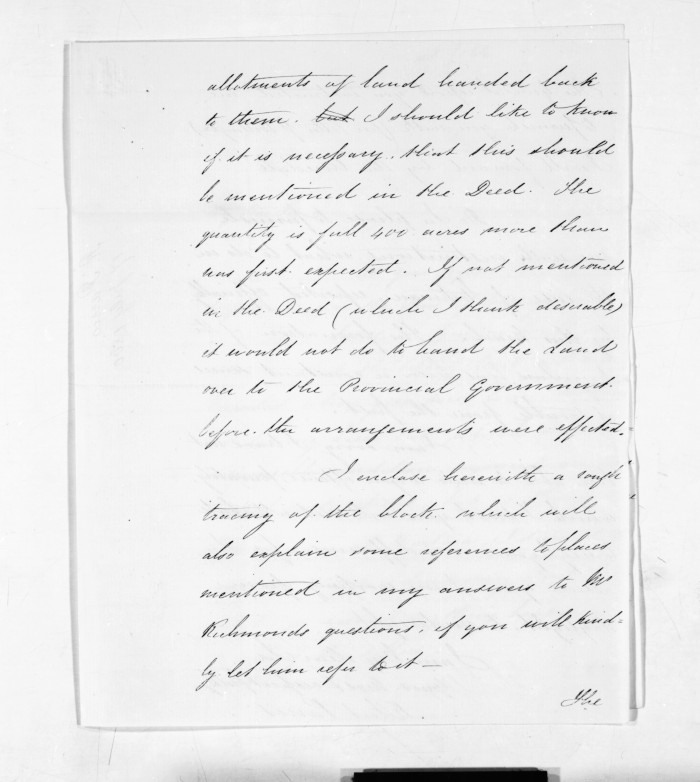 allotments of land handed back
to them. but I should like to know
if it is necessary. that this should
be mentioned in the Deed. The
quantity is full 400 acres more than
was first expected. If not mentioned
in the Deed (which I think deserable)
it would not do to hand the Land
over to the Provincial Government
before the arrangements were effected.
I enclose herewith a rough
tracing of the block. which will
also explain some references to places
mentioned in my answers to Mr
Richmonds questions. if you will kind=
ly let him refer to it —
The